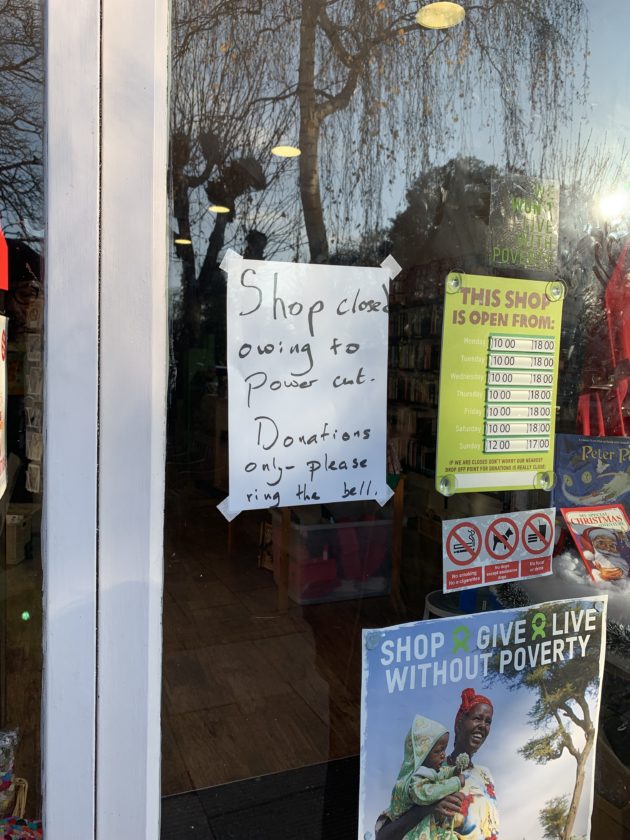 Shop closed
owing to
power cut.
Donations
only - please
ring the bell.
WON'T
LIVE
WITH
POVERTY
THIS SHOP
IS OPEN FROM:
Monday 10 00 18 00
Tuesday 10 00 18 00
Wednesday 10 00 18 00
Thursday 10 00 18 00
Friday 10 00 18 00
Saturday 10 00 18 00
Sunday 12 00 17 00
IF WE ARE CLOSED DON'T WORRY OUR NEAREST
DROP OFF POINT FOR DONATIONS IS REALLY CLOSE:
No smoking
No e cigarettes
No dogs
except assistance
dogs
No food
or drink
Peter P
MY SPECIAL
CHRISTMAS
SHOP GIVE LIVE
WITHOUT POVERTY